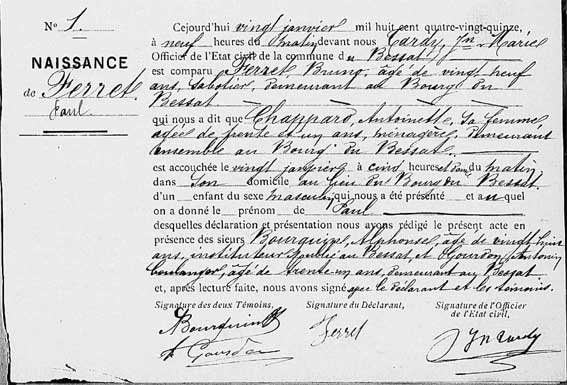 N° 1.
NAISSANCE
de Ferret
Paul
Cejourd'hui vingt janvier mil huit cent quatre-vingt-quinze,
à neuf heures du matin devant nous Tardy, Jn Marie
Officier de l'Etat civil de la commune du Bessat
est comparu Ferret, Bruno, âgé de vingt neuf
ans, sabotier, demeurant au Bourg du
Bessat
qui nous a dit que Chappard, Antoinette, sa femme
agée de trente et un ans, ménagère, demeurant
ensemble au Bourg du Bessat.
est accouchée le vingt janvier à cinq heures du matin
dans son domicile au lieu du Bourg du Bessat
d'un enfant du sexe masculin qui nous a été présenté et auquel
on a donné le prénom de Paul
desquelles déclaration et présentation nous avons rédigé le présent acte en
présence des sieurs Bourquin, Alphonse, âgé de vingt huit
ans, instituteur public au Bessat et Gourdon, Antonin
boulanger, âgé de trente-un ans, demeurant au Bessat
et, après lecture faite, nous avons signé avec le déclarant et les témoins.
Signature des deux Témoins,
Signature du Déclarant,
Signature de l'Officier
de l'Etat civil,
Bourquin
Ferret
Jn Tardy
Gourdon